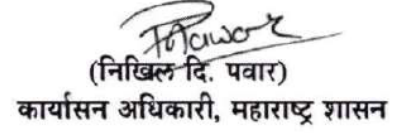 (निखिल दि. पवार)
कार्यासन अधिकारी, महाराष्ट्र शासन